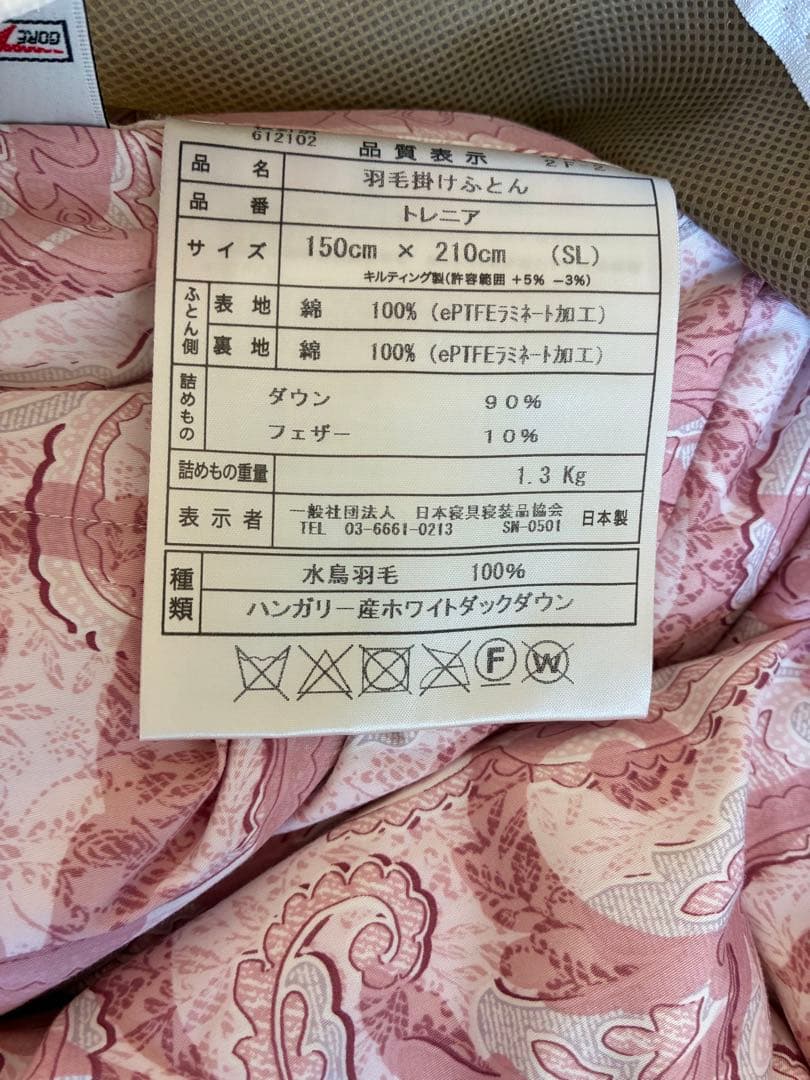 GORE
612102
品質表示
2F 2
品名 羽毛掛けふとん
品番 トレニア
サイズ 150cm × 210cm (SL)
キルティング製(許容範囲 +5% -3%)
ふとん側 表地 綿 100% (ePTFEラミネート加工)
裏地 綿 100% (ePTFEラミネート加工)
詰めもの ダウン 90%
フェザー 10%
詰めもの重量 1.3 Kg
表示者 一般社団法人 日本寝具寝装品協会 日本製
TEL 03-6661-0213 SN-0501
種類 水鳥羽毛 100%
ハンガリー産ホワイトダックダウン
F W